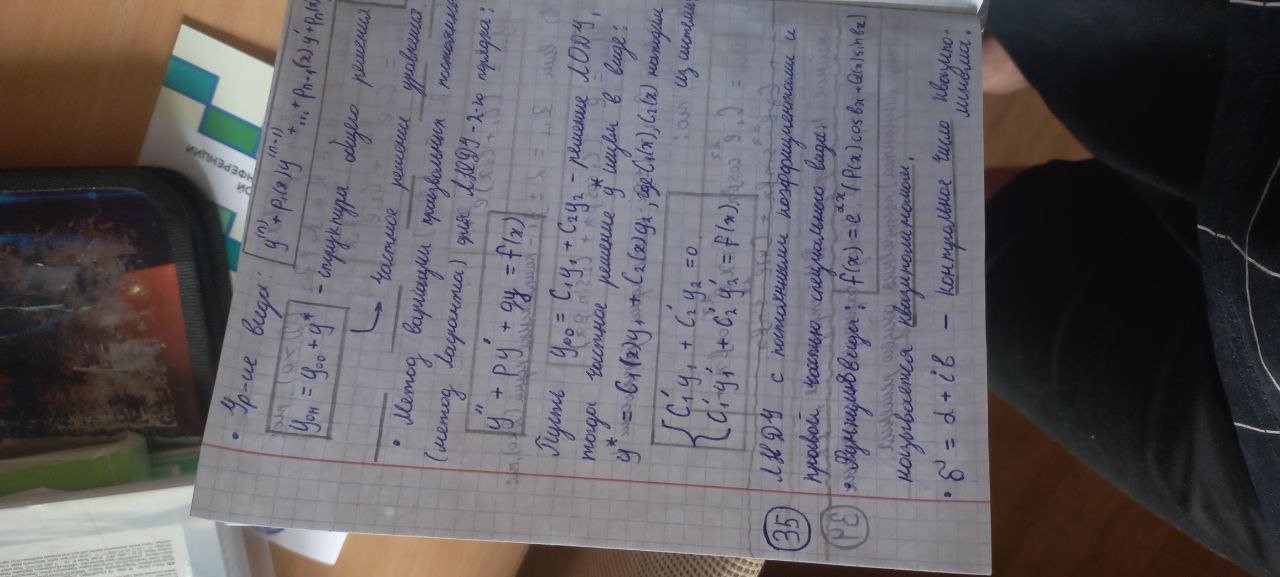 • Ур-ие вида: y⁽ⁿ⁾ + p₁(x)y⁽ⁿ⁻¹⁾ + ... + pₙ₋₁(x)y' + pₙ(x)
yон = yоо + y* - структура общего решения
частное решение уравнения.
• Метод вариации произвольных постоянных
(метод Лагранжа) для ЛНДУ - 2-го порядка:
y'' + py' + qy = f(x)
Пусть yоо = C₁y₁ + C₂y₂ - решение ЛОДУ,
тогда частное решение y* ищем в виде:
y* = C₁(x)y₁ + C₂(x)y₂, где C₁(x), C₂(x) находим
из системы
{ C₁'y₁ + C₂'y₂ = 0
{ C₁'y₁' + C₂'y₂' = f(x)
35 ЛНДУ с постоянными коэффициентами и
правой частью специального вида.
Функция вида: f(x) = e^αx (P(x) cos bx + Q(x) sin bx)
называется квазиполиномом.
• γ = α + ib - контрольное число квазипо-
линома.
ОЙ
НФЕРЕНЦИИ